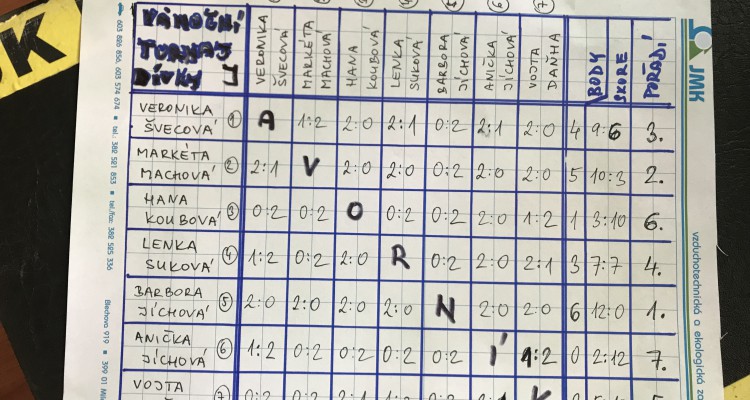 VÁNOČNÍ
TURNAJ
DÍVKY
VERONIKA ŠVECOVÁ
MARKÉTA MACHOVÁ
HANA KOUBOVÁ
LENKA SUKOVÁ
BARBORA JÍCHOVÁ
ANIČKA JÍCHOVÁ
VOJTA DAŇHA
BODY
SKORE
POŘADÍ
VERONIKA ŠVECOVÁ 1 A 1:2 2:0 2:1 0:2 2:1 2:0 4 9:6 3.
MARKÉTA MACHOVÁ 2 2:1 V 2:0 2:0 0:2 2:0 2:0 5 10:3 2.
HANA KOUBOVÁ 3 0:2 0:2 O 0:2 0:2 2:0 1:2 1 3:10 6.
LENKA SUKOVÁ 4 1:2 0:2 2:0 R 0:2 2:0 2:1 3 7:7 4.
BARBORA JÍCHOVÁ 5 2:0 2:0 2:0 2:0 N 2:0 2:0 6 12:0 1.
ANIČKA JÍCHOVÁ 6 1:2 0:2 0:2 0:2 0:2 Í 1:2 0 2:12 7.
VOJTA
JMK
vzduchotechnická a ekologická
603 866 856, 603 574 674 ■ tel.: 382 521 653 ■ tel./fax: 382 525 336
Blechova 919 ■ 399 01